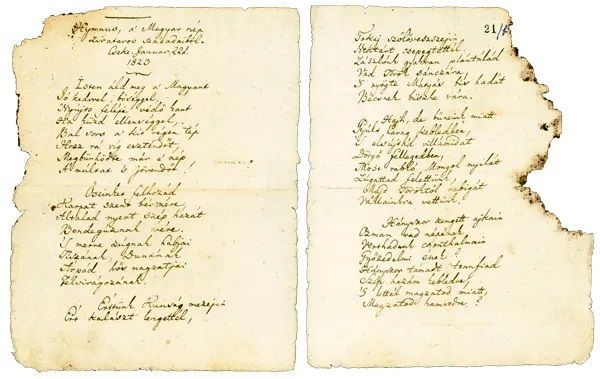 Hymnus, a' Magyar nép
zivataros századaiból.
Cseke. Januar. 22d.
1823
Isten áld meg a' Magyart
Jó kedvvel, bőséggel,
Nyújts feléje védő kart
Ha küzd ellenséggel;
Bal sors a' kit régen tép
Hozz rá víg esztendőt,
Megbünhődte már e' nép
A' multat 's jövendőt!
Őseinket felhozád
Kárpát szent bérczére,
Általad nyert szép hazát
Bendegúznak vére.
'S merre zúgnak habjai
Tiszának, Dunának,
Árpád hős magzatjai
Felvirágozának.
Értünk Kunság mezein
Ért kalászt lengettél,
21
Tokaj szőlővesszein
Nektárt csepegtettél.
Zászlónk gyakran plántálád
Vad Török sánczára,
'S nyögte Mátyás bús hadát
Bécsnek büszke vára.
Hajh, de bűneink miatt
Gyúlt harag kebledben,
'S elsújtád villámidat
Dörgő fellegedben,
Most rabló Mongol nyilát
Zúgattad felettünk,
Majd Töröktől rabigát
Vállainkra vettünk.
Hányszor zengett ajkain
Ozman vad népének,
Vert hadunk csonthalmain
Győzedelmi ének!
Hányszor támadt tenfiad
Szép hazám kebledre,
'S lettél magzatod miatt,
Magzatod hamvvedre?